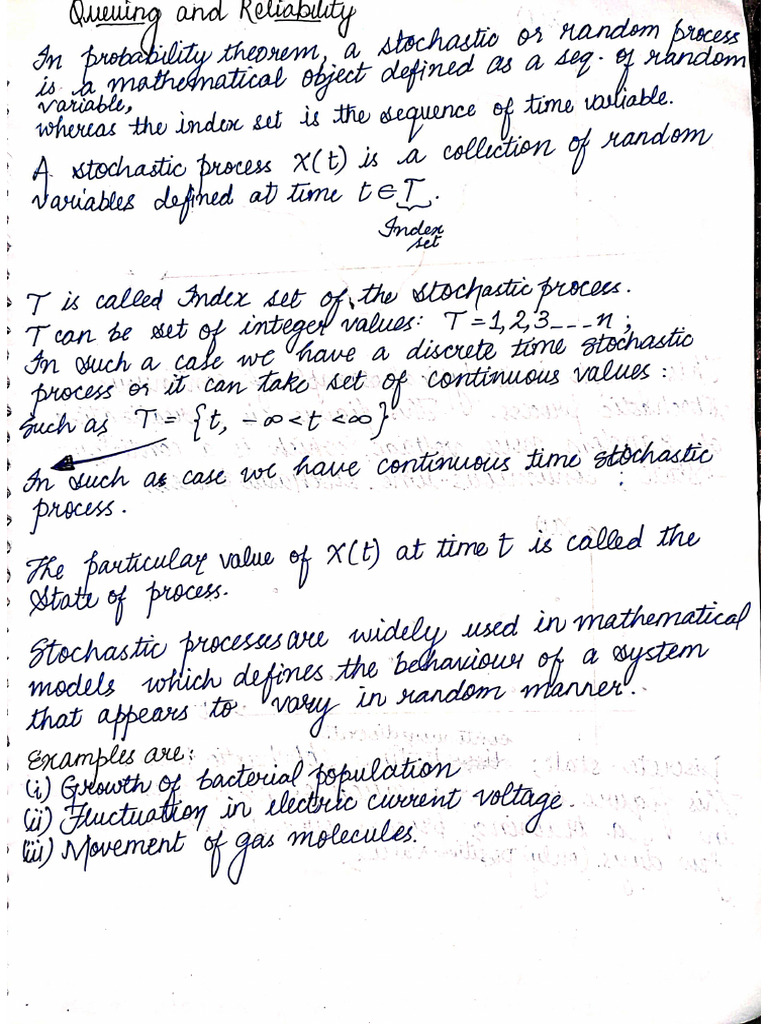 Queuing and Reliability
In probability theorem, a stochastic or random process
is a mathematical object defined as a seq. of random
variable,
whereas the index set is the sequence of time variable.
A stochastic process X(t) is a collection of random
variables defined at time t ∈ T.
Index
set
T is called Index set of the stochastic process.
T can be set of integer values: T = 1, 2, 3 --- n ;
In such a case we have a discrete time stochastic
process or it can take set of continuous values :
Such as T = {t, -∞ < t < ∞}
In such as case we have continuous time stochastic
process.
The particular value of X(t) at time t is called the
State of process.
Stochastic processes are widely used in mathematical
models which defines the behaviour of a system
that appears to vary in random manner.
Examples are:
(i) Growth of bacterial population
(ii) Fluctuation in electric current voltage.
(iii) Movement of gas molecules.